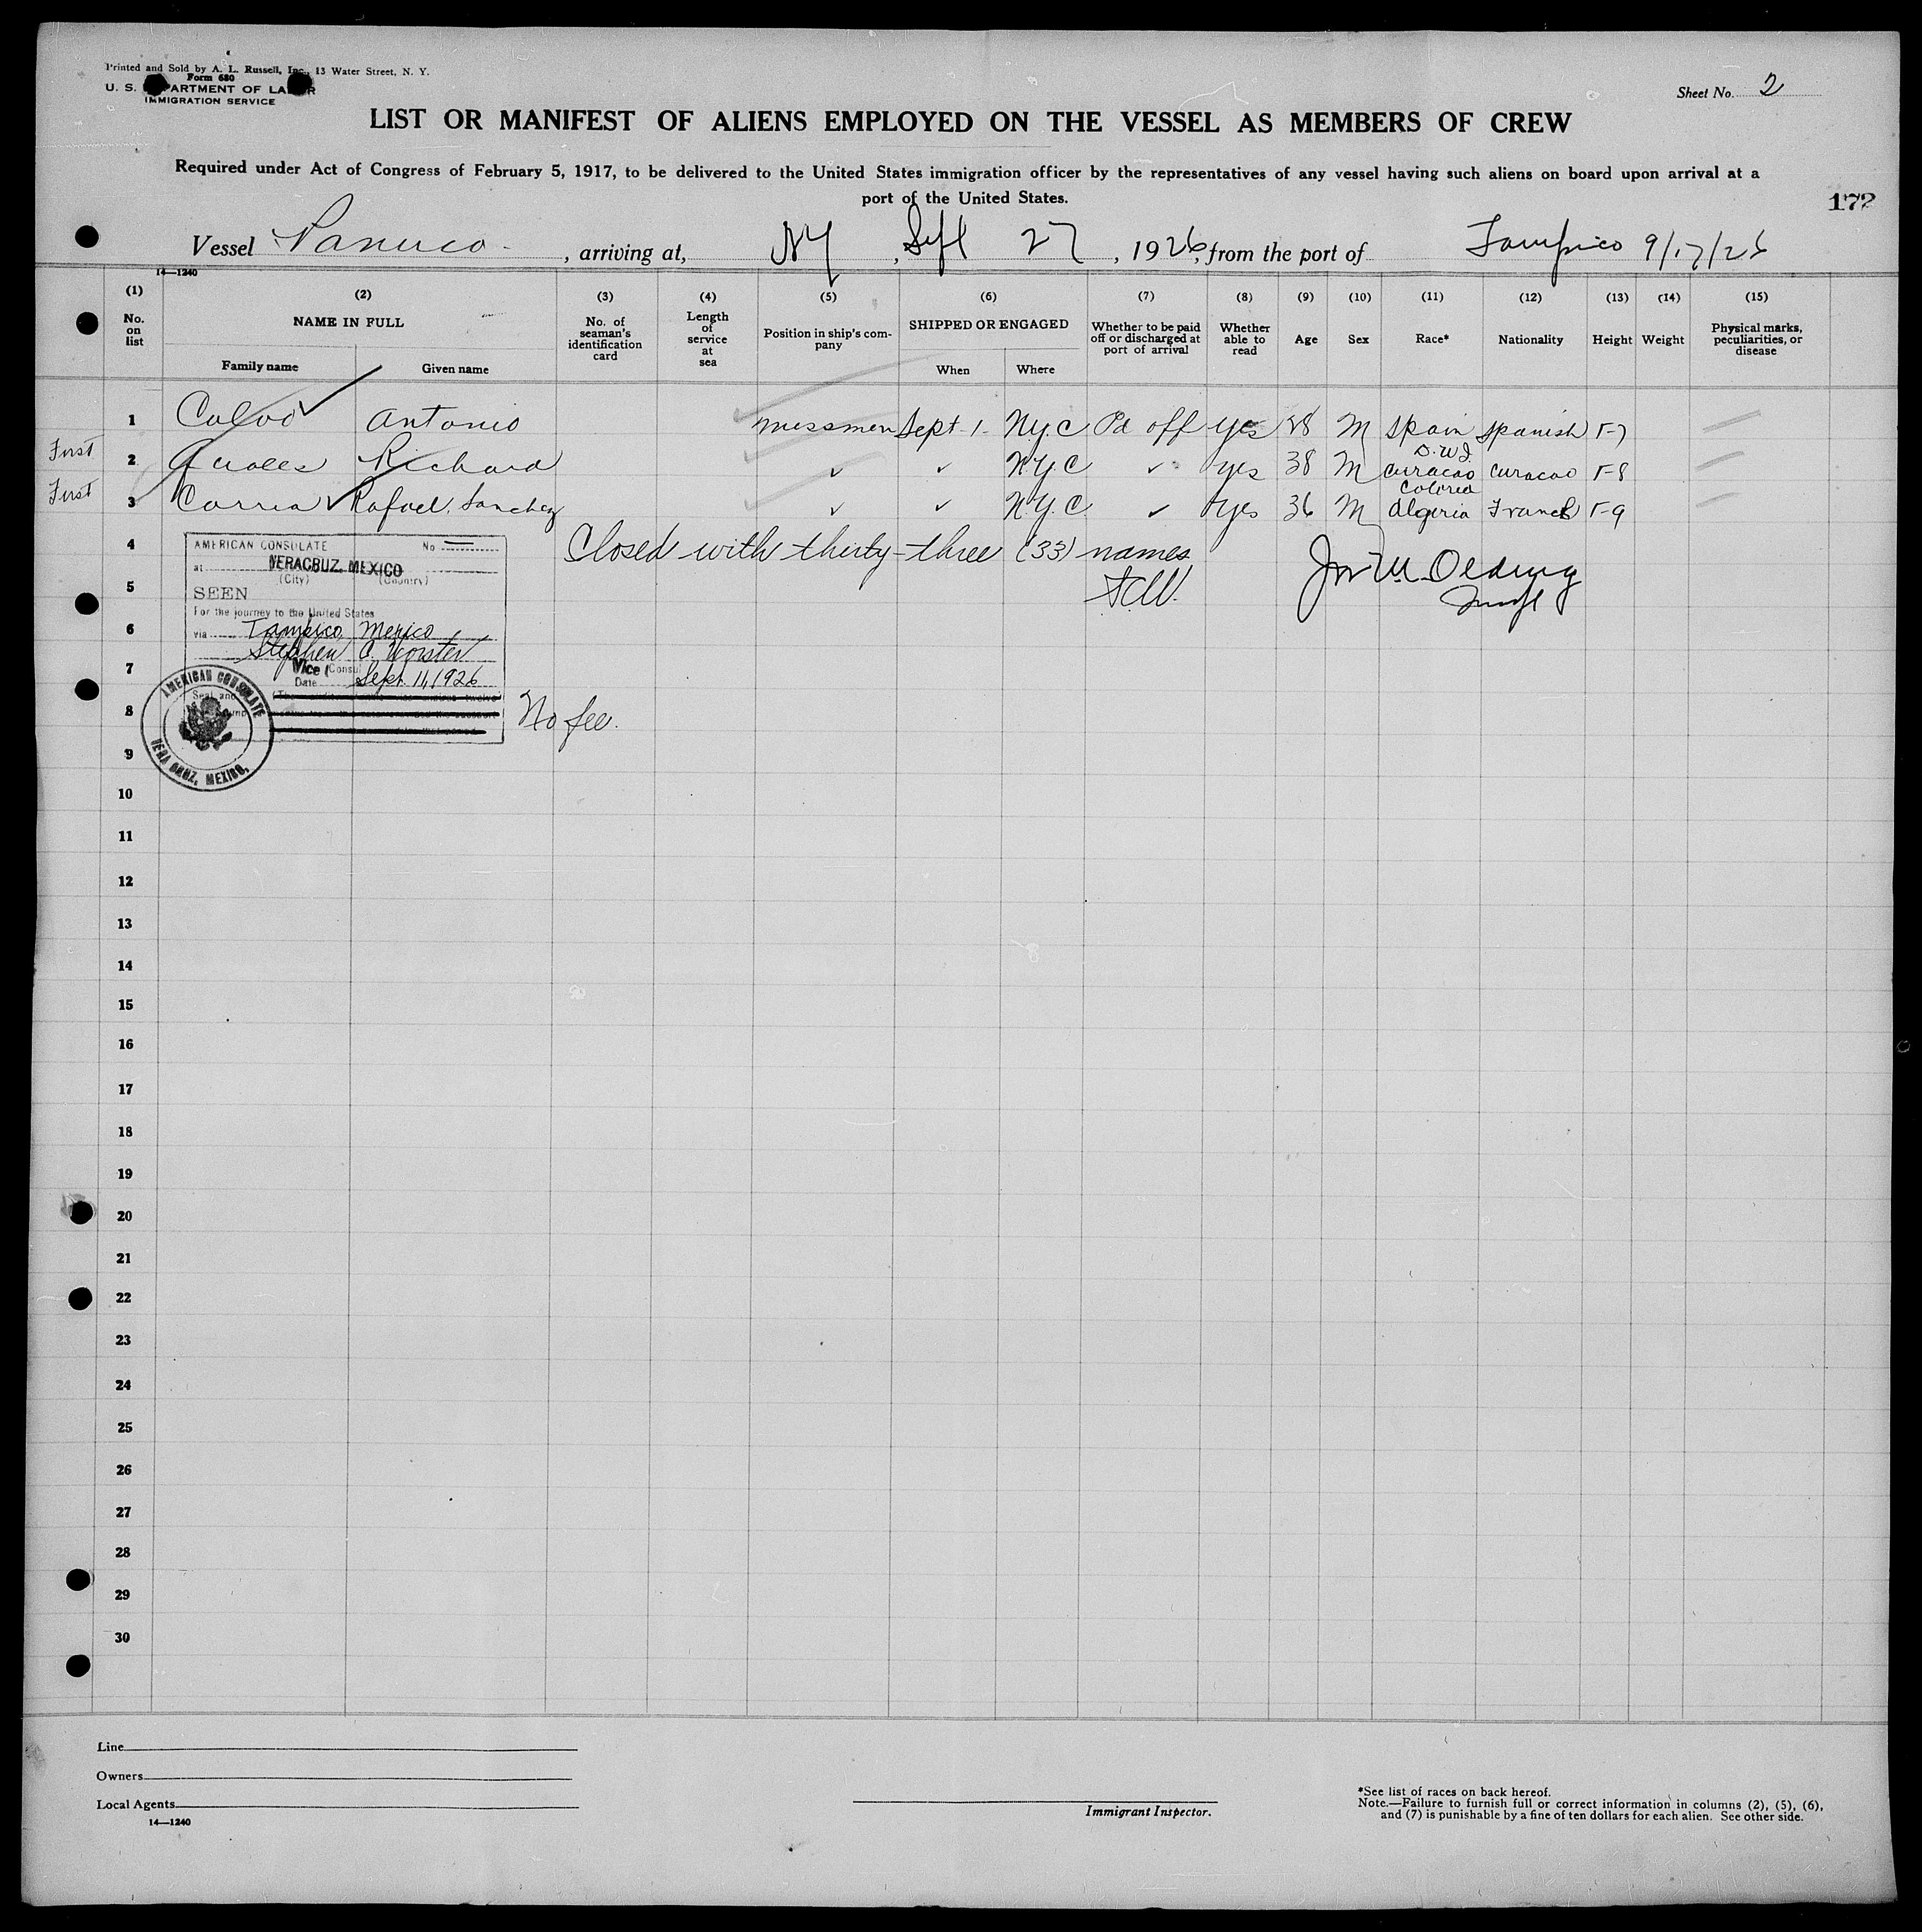 Printed and Sold by A. L. Russell, Inc., 13 Water Street, N. Y.
Form 680
U. S. DEPARTMENT OF LABOR
IMMIGRATION SERVICE
Sheet No. 2
LIST OR MANIFEST OF ALIENS EMPLOYED ON THE VESSEL AS MEMBERS OF CREW
Required under Act of Congress of February 5, 1917, to be delivered to the United States immigration officer by the representatives of any vessel having such aliens on board upon arrival at a
port of the United States.
172
Vessel Panuco, arriving at, NY, Sept 27, 1926, from the port of Tampico 9/17/26
14—1240
(1) (2) (3) (4) (5) (6) (7) (8) (9) (10) (11) (12) (13) (14) (15)
No. on list
NAME IN FULL
Family name Given name
No. of seaman's identification card
Length of service at sea
Position in ship's company
SHIPPED OR ENGAGED
When Where
Whether to be paid off or discharged at port of arrival
Whether able to read
Age
Sex
Race*
Nationality
Height
Weight
Physical marks, peculiarities, or disease
1 Calvo Antonio messman Sept 1 N.Y.C Pd off yes 28 M Spain Spanish 5-7
First 2 Richard ✓ ✓ N.Y.C ✓ yes 38 M D.W.I. Curacao Curacao 5-8
First 3 Correa Rafael Sanchez ✓ ✓ N.Y.C. ✓ Yes 36 M Algeria French 5-9
4 Closed with thirty-three (33) names
5
6
7
8
9
10
11
12
13
14
15
16
17
18
19
20
21
22
23
24
25
26
27
28
29
30
AMERICAN CONSULATE No
at VERACRUZ, MEXICO
(City) (Country)
SEEN
For the journey to the United States
via Tampico, Mexico
Stephen C. Worster
Vice Consul
Date Sept. 11, 1926
AMERICAN CONSULATE
VERA CRUZ, MEXICO.
No fee.
Line
Owners
Local Agents
14—1240
Immigrant Inspector.
*See list of races on back hereof.
Note.—Failure to furnish full or correct information in columns (2), (5), (6),
and (7) is punishable by a fine of ten dollars for each alien. See other side.